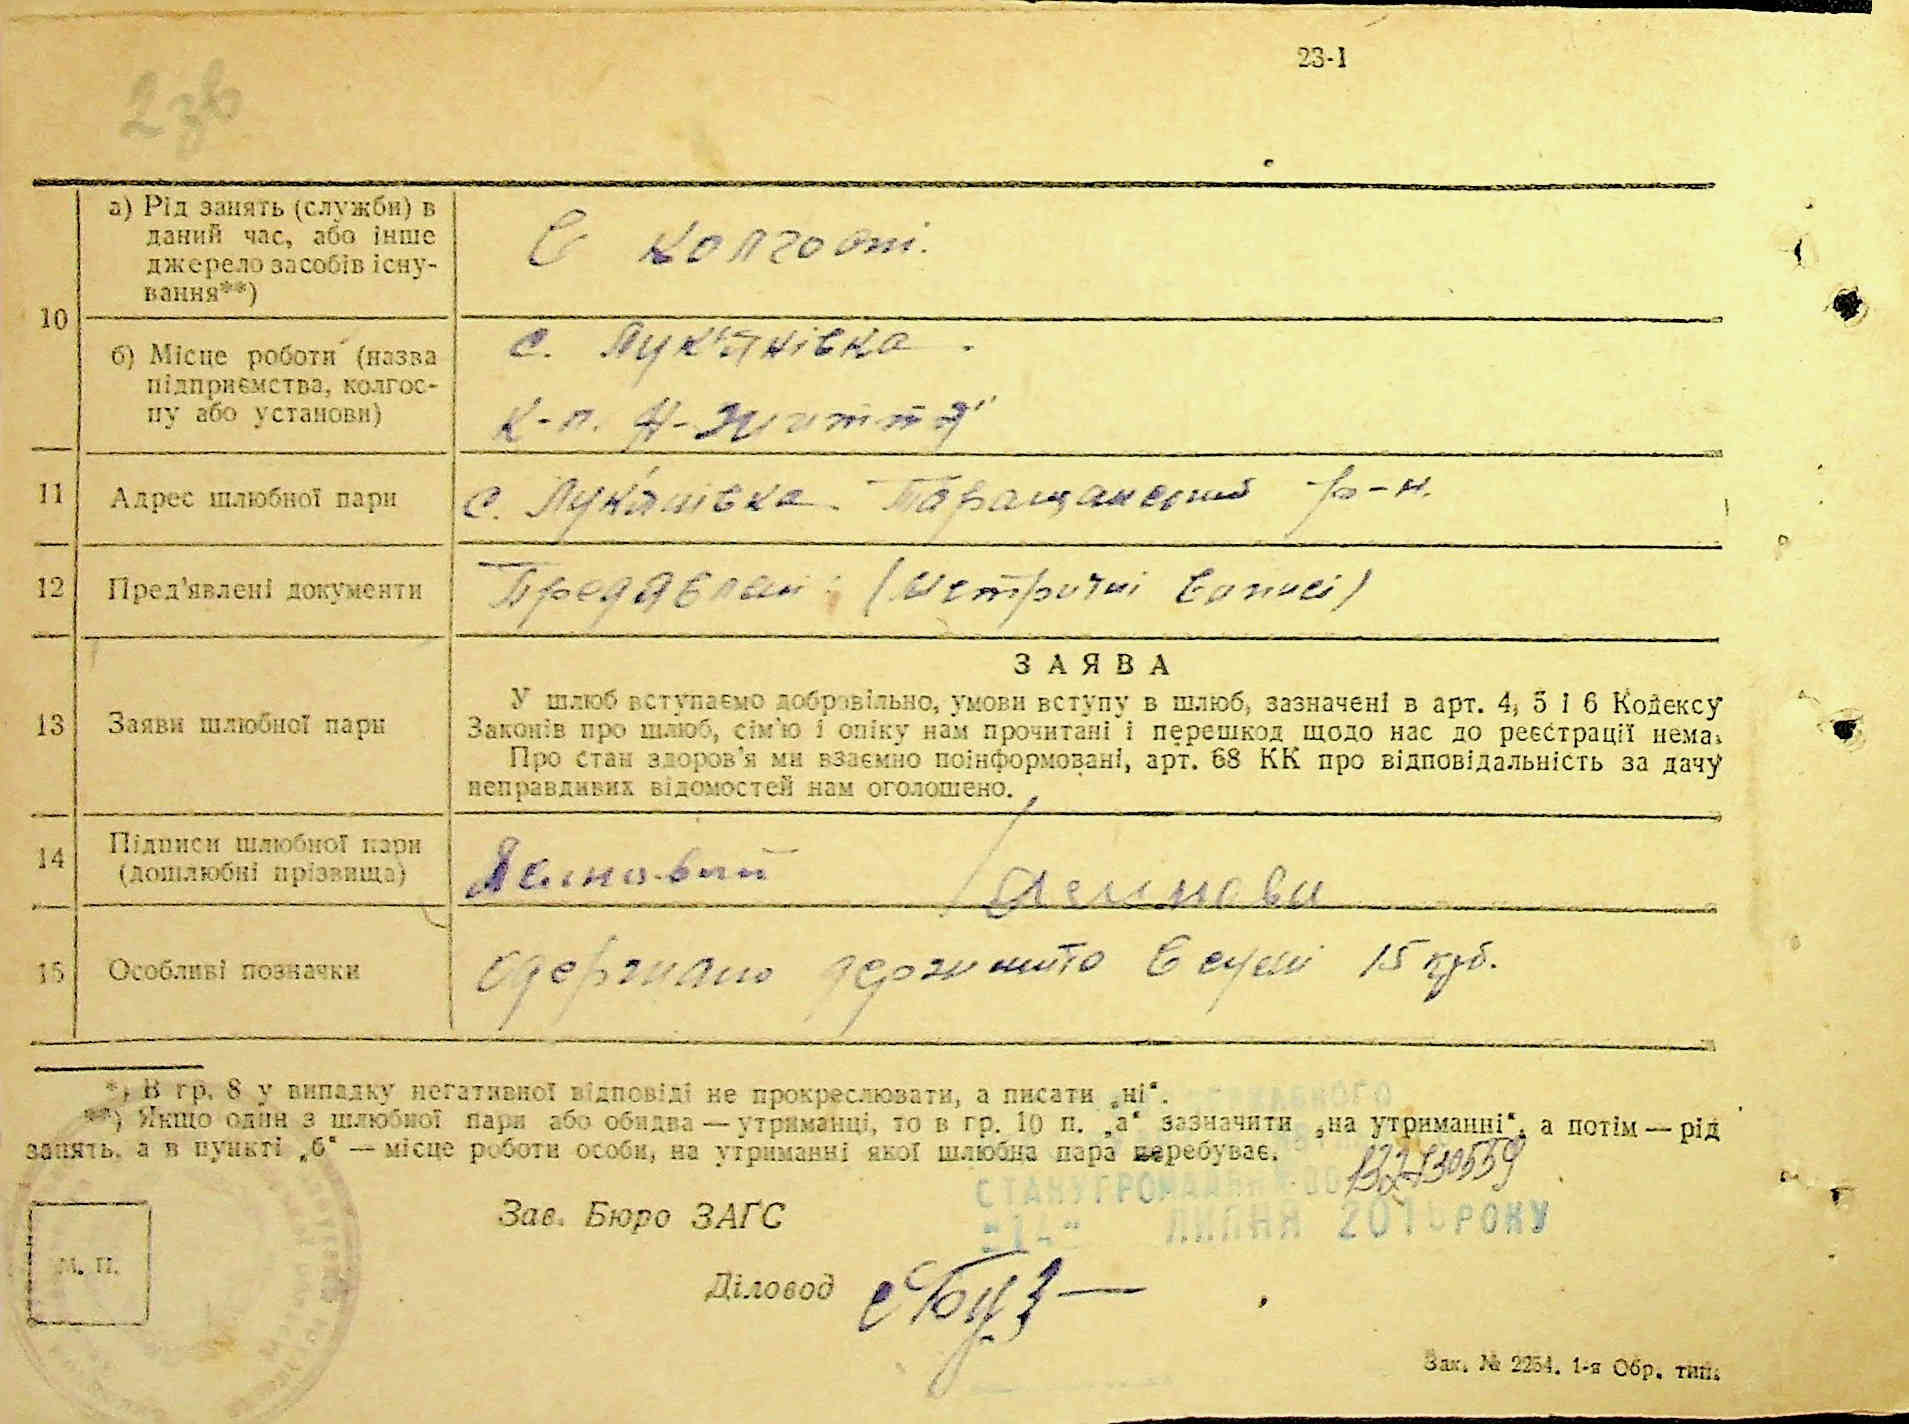 23-1
2зв
10
а) Рід занять (служби) в
даний час, або інше
джерело засобів існу-
вання**)
В колгоспі.
б) Місце роботи (назва
підприємства, колгос-
пу або установи)
с. Лук'янівка.
к-п. Н-Життя"
11
Адрес шлюбної пари
с. Лук'янівка. Таращанський р-н.
12
Пред'явлені документи
(Метричні виписі)
13
Заяви шлюбної пари
ЗАЯВА
У шлюб вступаємо добровільно, умови вступу в шлюб, зазначені в арт. 4, 5 і 6 Кодексу
Законів про шлюб, сім'ю і опіку нам прочитані і перешкод щодо нас до реєстрації нема.
Про стан здоров'я ми взаємно поінформовані, арт. 68 КК про відповідальність за дачу
неправдивих відомостей нам оголошено.
14
Підписи шлюбної пари
(дошлюбні прізвища)
15
Особливі позначки
одержано держмито в сумі 15 крб.
*) В гр. 8 у випадку негативної відповіді не прокреслювати, а писати „ні“.
**) Якщо один з шлюбної пари або обидва — утриманці, то в гр. 10 п. „а“ зазначити „на утриманні“, а потім — рід
занять, а в пункті „б“ — місце роботи особи, на утриманні якої шлюбна пара перебуває.
Зав. Бюро ЗАГС
ЛИПНЯ РОКУ
М. П.
Діловод
Зак. № 2254. 1-я Обр. тип.